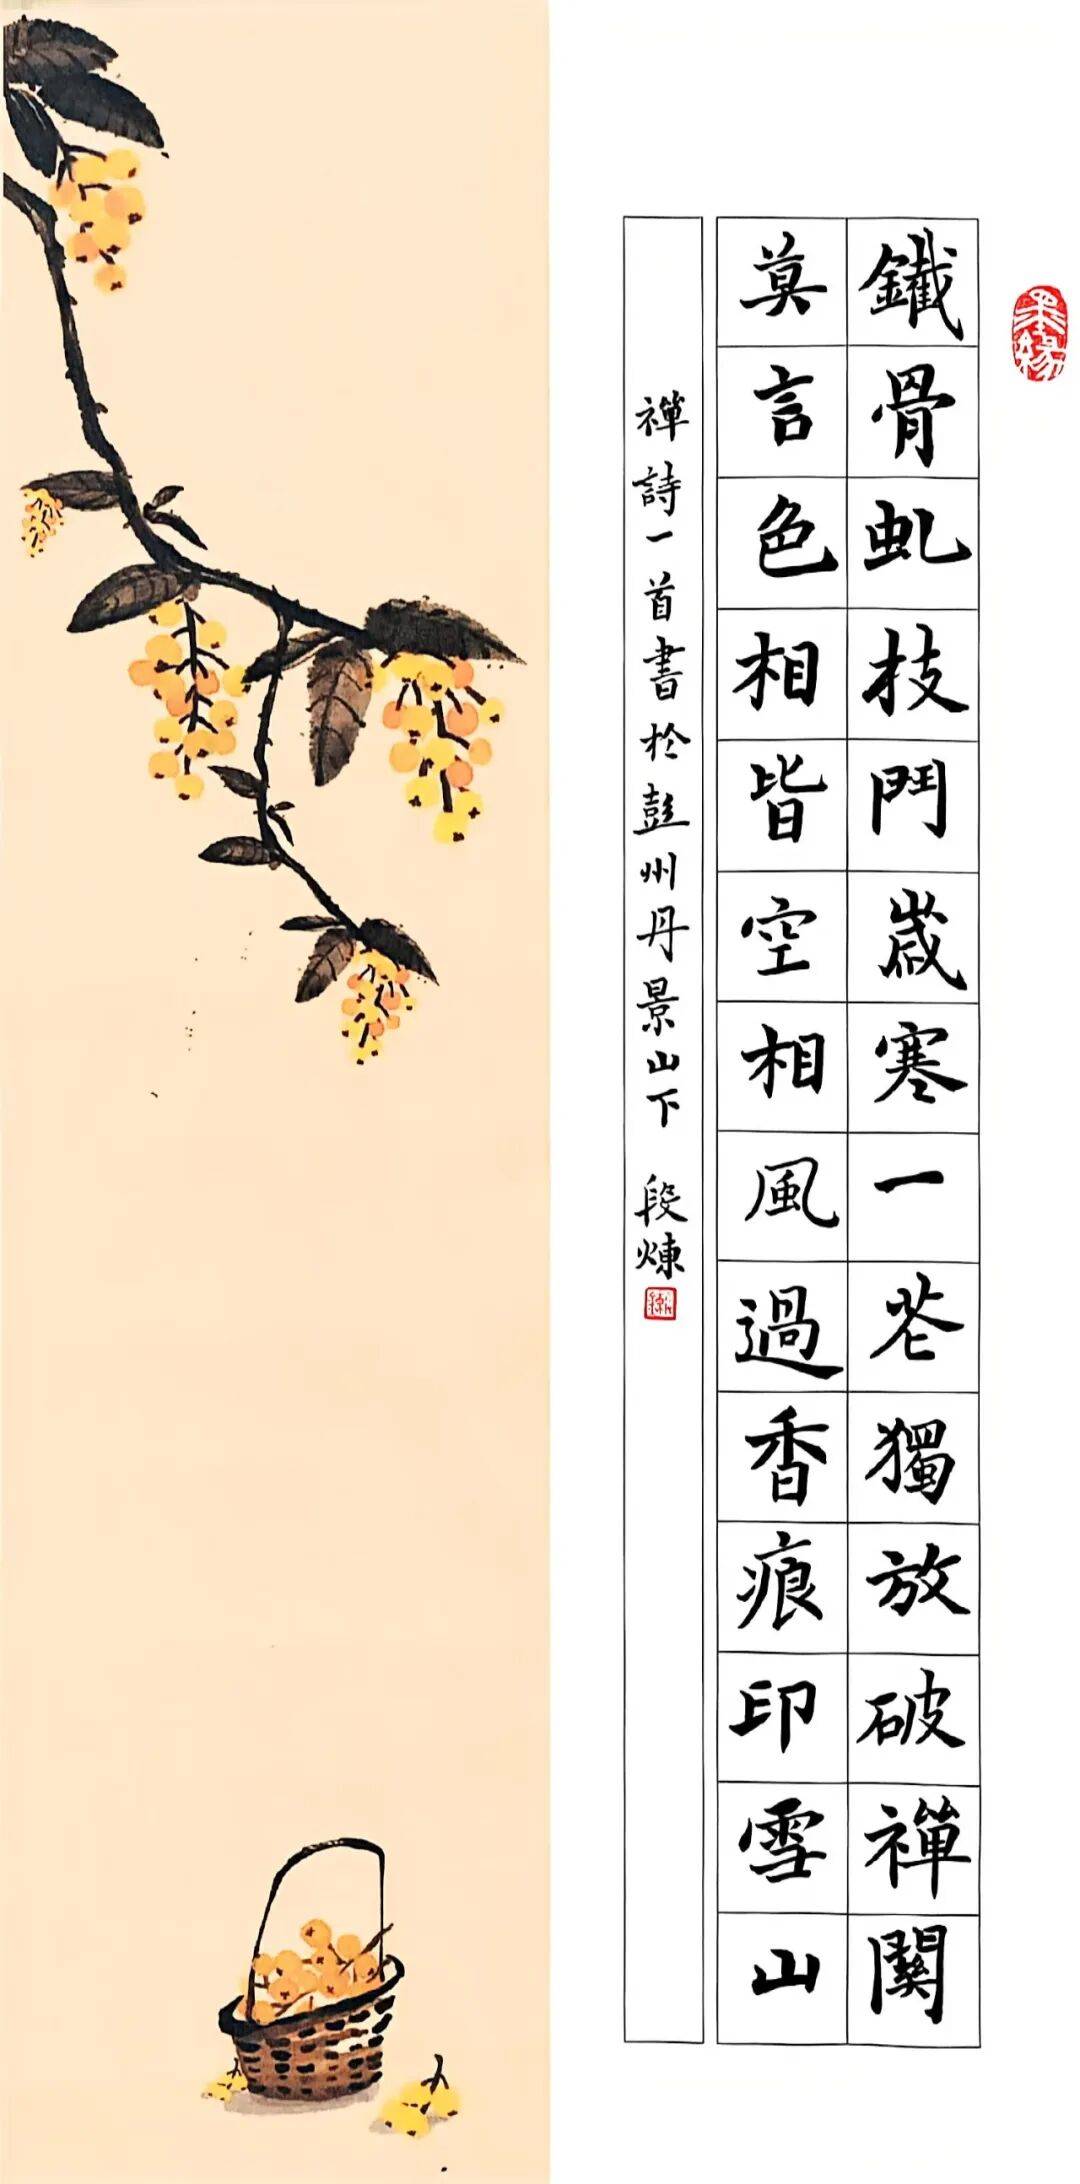 鐵骨虬枝鬥歲寒一花獨放破禪關
莫言色相皆空相風過香痕印雪山
禪詩一首書於彭州丹景山下 段煉